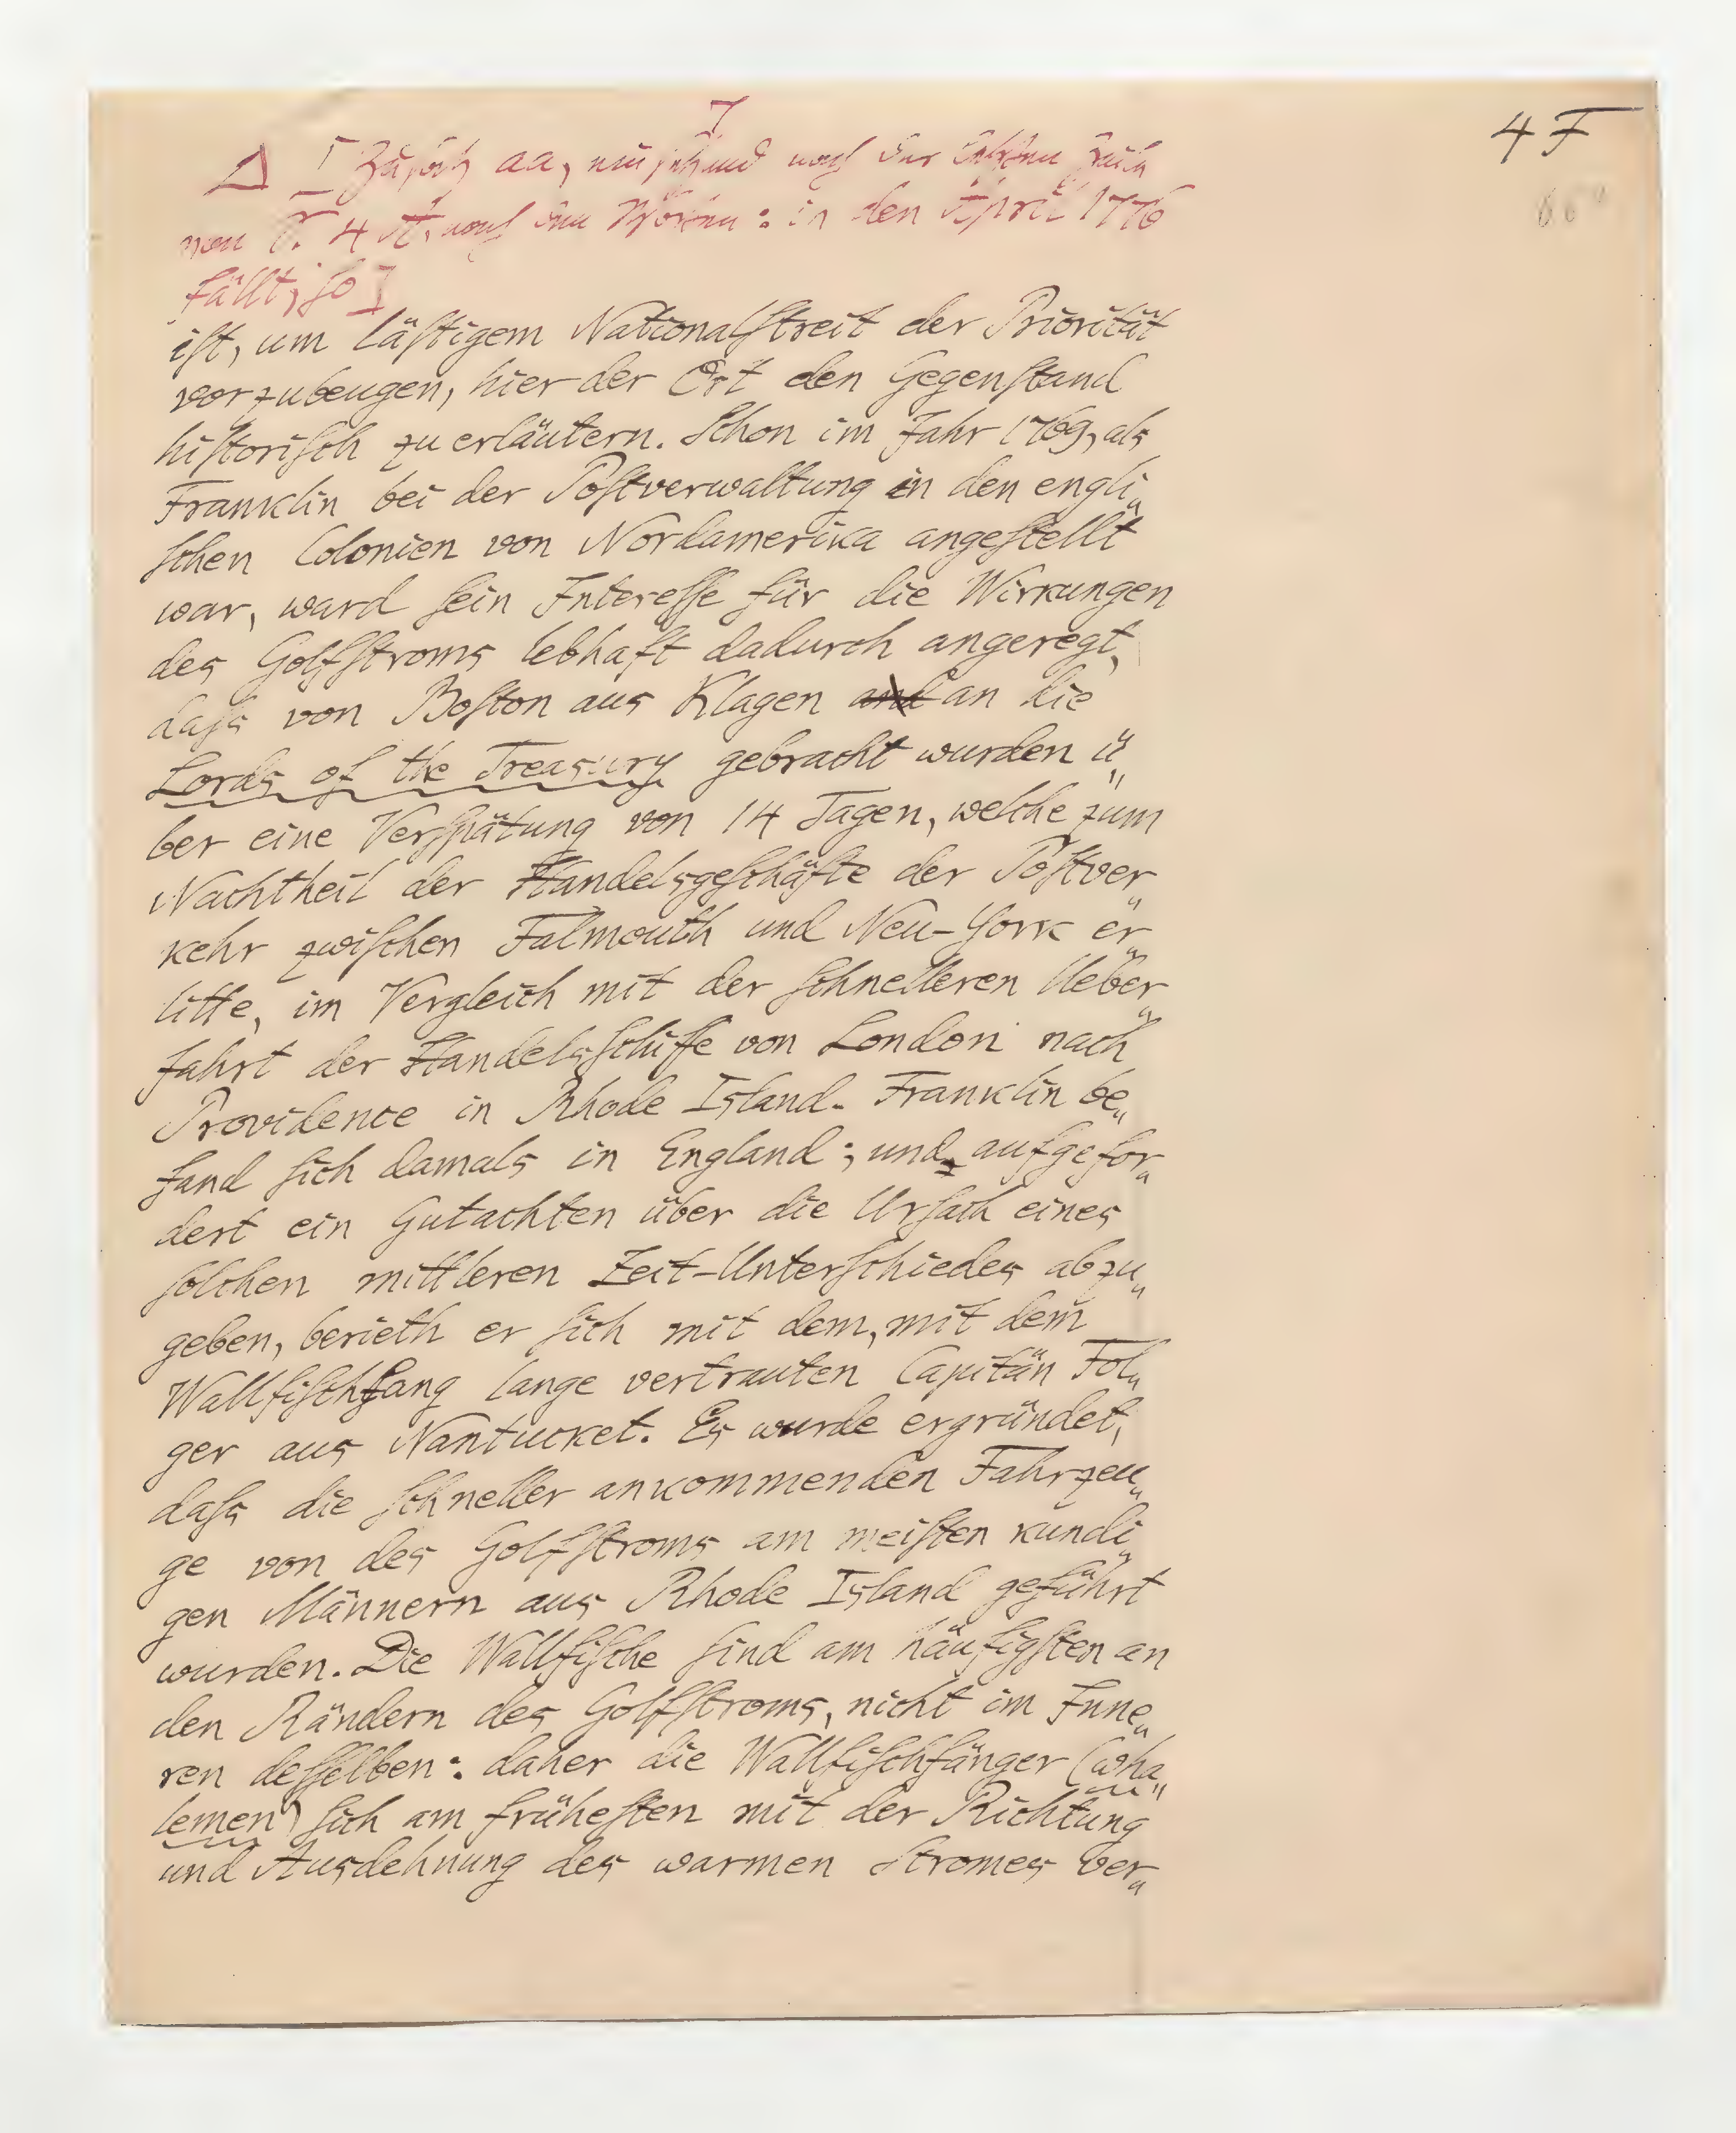 4 F
66
Δ [Zusatz aa, nach der letzten Zeile
von S. 4 A. nach den Worten: in den April 1776
fällt, so]
iſt, um läſtigem Nationalſtreit der Priorität
vorzubeugen, hier der Ort den Gegenſtand
hiſtoriſch zu erläutern. Schon im Jahr 1769, als
Franklin bei der Poſtverwaltung in den engli„
ſchen Colonien von Nordamerika angeſtellt
war, ward ſein Intereſſe für die Wirkungen
des Golfſtroms lebhaft dadurch angeregt,
daſs von Boſton aus Klagen and an die
Lords of the Treasury gebracht wurden ü„
ber eine Verſpätung von 14 Tagen, welche zum
Nachtheil der Handelsgeſchäfte der Poſtver„
kehr zwiſchen Falmouth und Neu-York er„
litte, im Vergleich mit der ſchnelleren Ueber„
fahrt der Handelsſchiffe von London nach
Providence in Rhode Island. Franklin be„
fand ſich damals in England; und, aufgefor„
dert ein Gutachten über die Urſach eines
ſolchen mittleren Zeit-Unterſchiedes abzu„
geben, berieth er ſich mit dem, mit dem
Wallfiſchfang lange vertrauten Capitän Fol„
ger aus Nantucket. Es wurde ergründet,
daſs die ſchneller ankommenden Fahrzeu„
ge von des Golfſtroms am meiſten kundi„
gen Männern aus Rhode Island geführt
wurden. Die Wallfiſche ſind am häufigſten an
den Rändern des Golfſtroms, nicht im Inne„
ren deſſelben: daher die Wallfiſchfänger (wha„
lemen) ſich am früheſten mit der Richtung
und Ausdehnung des warmen Stromes ver„